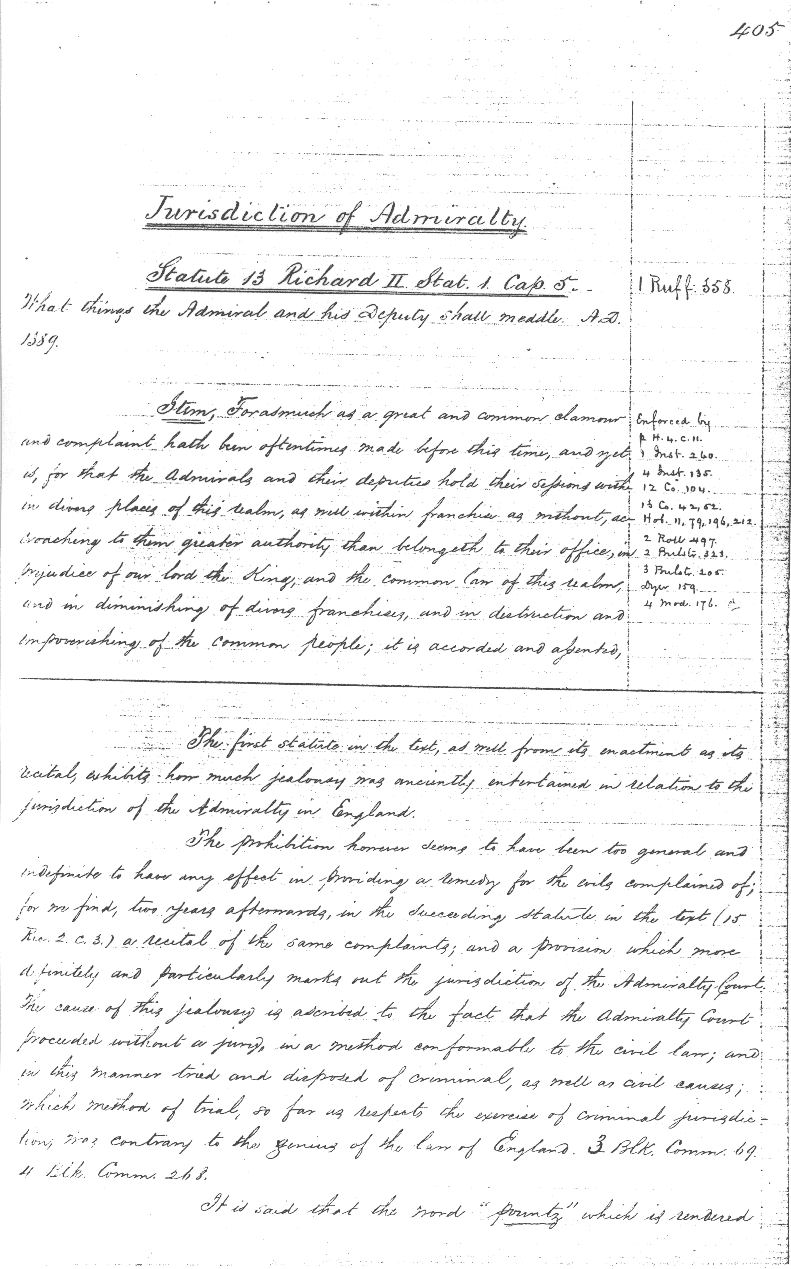 405
Jurisdiction of Admiralty.
Statute 13 Richard II. Stat. 1. Cap. 5.
1 Ruff. 358.
What things the Admiral and his Deputy shall meddle. A.D.
1389.
Item, Forasmuch as a great and common clamour
and complaint hath been oftentimes made before this time, and yet
is, for that the Admirals and their deputies hold their sessions with-
in divers places of this realm, as well within franchise as without, ac-
croaching to them greater authority than belongeth to their office, in
prejudice of our lord the King, and the common law of this realm,
and in diminishing of divers franchises, and in destruction and
impoverishing of the common people; it is accorded and assented,
Enforced by
2 H. 4. C. 11.
1 Inst. 260.
4 Inst. 135.
12 Co. 104.
13 Co. 42, 52.
Hob. 11, 79, 196, 212.
2 Roll 497.
2 Bulst. 323.
3 Bulst. 205.
Dyer 159.
4 Mod. 176.
The first statute in the text, as well from its enactment as its
recital, exhibits how much jealousy was anciently entertained in relation to the
jurisdiction of the Admiralty in England.
The prohibition however seems to have been too general and
indefinite to have any effect in providing a remedy for the evils complained of;
for we find, two years afterwards, in the succeeding statute in the text (15
Ric. 2. c. 3.) a recital of the same complaints; and a provision which more
definitely and particularly marks out the jurisdiction of the Admiralty Court.
The cause of this jealousy is ascribed to the fact that the Admiralty Court
proceeded without a jury, in a method conformable to the civil law; and
in this manner tried and disposed of criminal, as well as civil causes;
which method of trial, so far as respects the exercise of criminal jurisdic-
tion, was contrary to the genius of the law of England. 3 Blk. Comm. 69.
4 Blk. Comm. 268.
It is said that the word "pountz" which is rendered